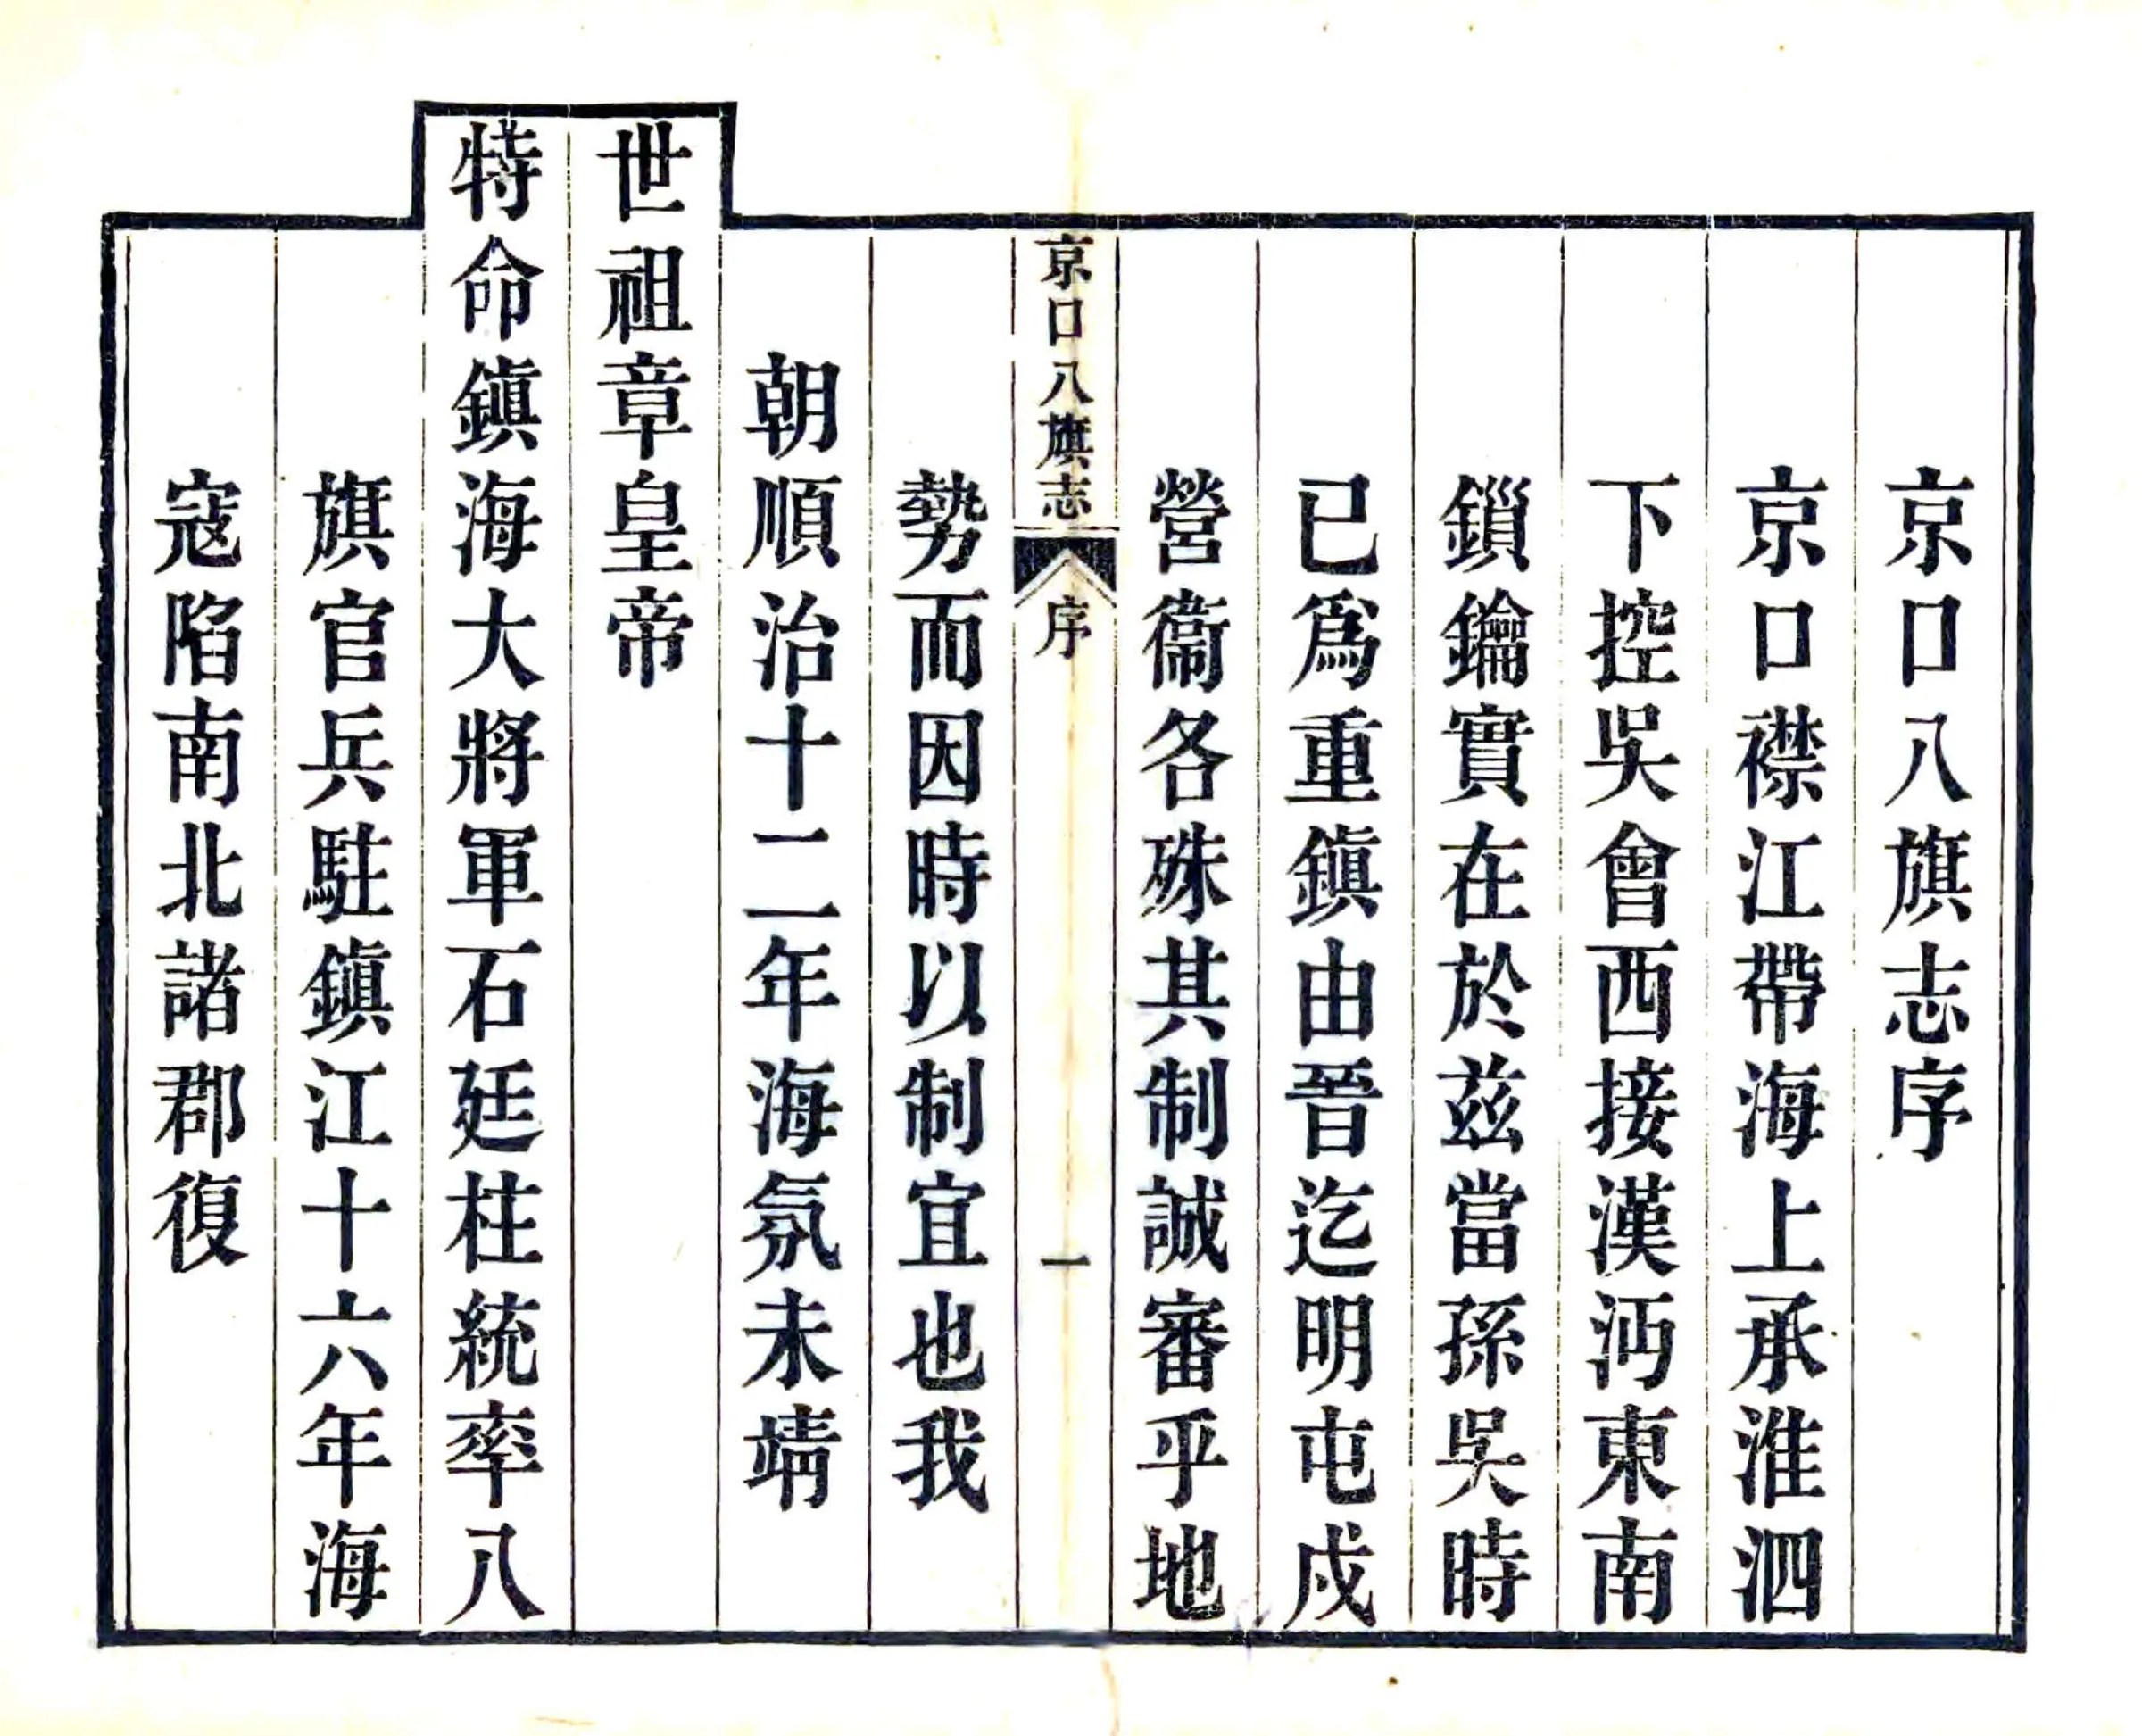 京口八旗志序
京口襟江帶海上承淮泗
下控吳會西接漢沔東南
鎖鑰實在於茲當孫吳時
已爲重鎭由晉迄明屯戍
營衞各殊其制誠審乎地
京口八旗志 序 一
勢而因時以制宜也我
朝順治十二年海氛未靖
世祖章皇帝
特命鎭海大將軍石廷柱統率八
旗官兵駐鎭江十六年海
寇陷南北諸郡復